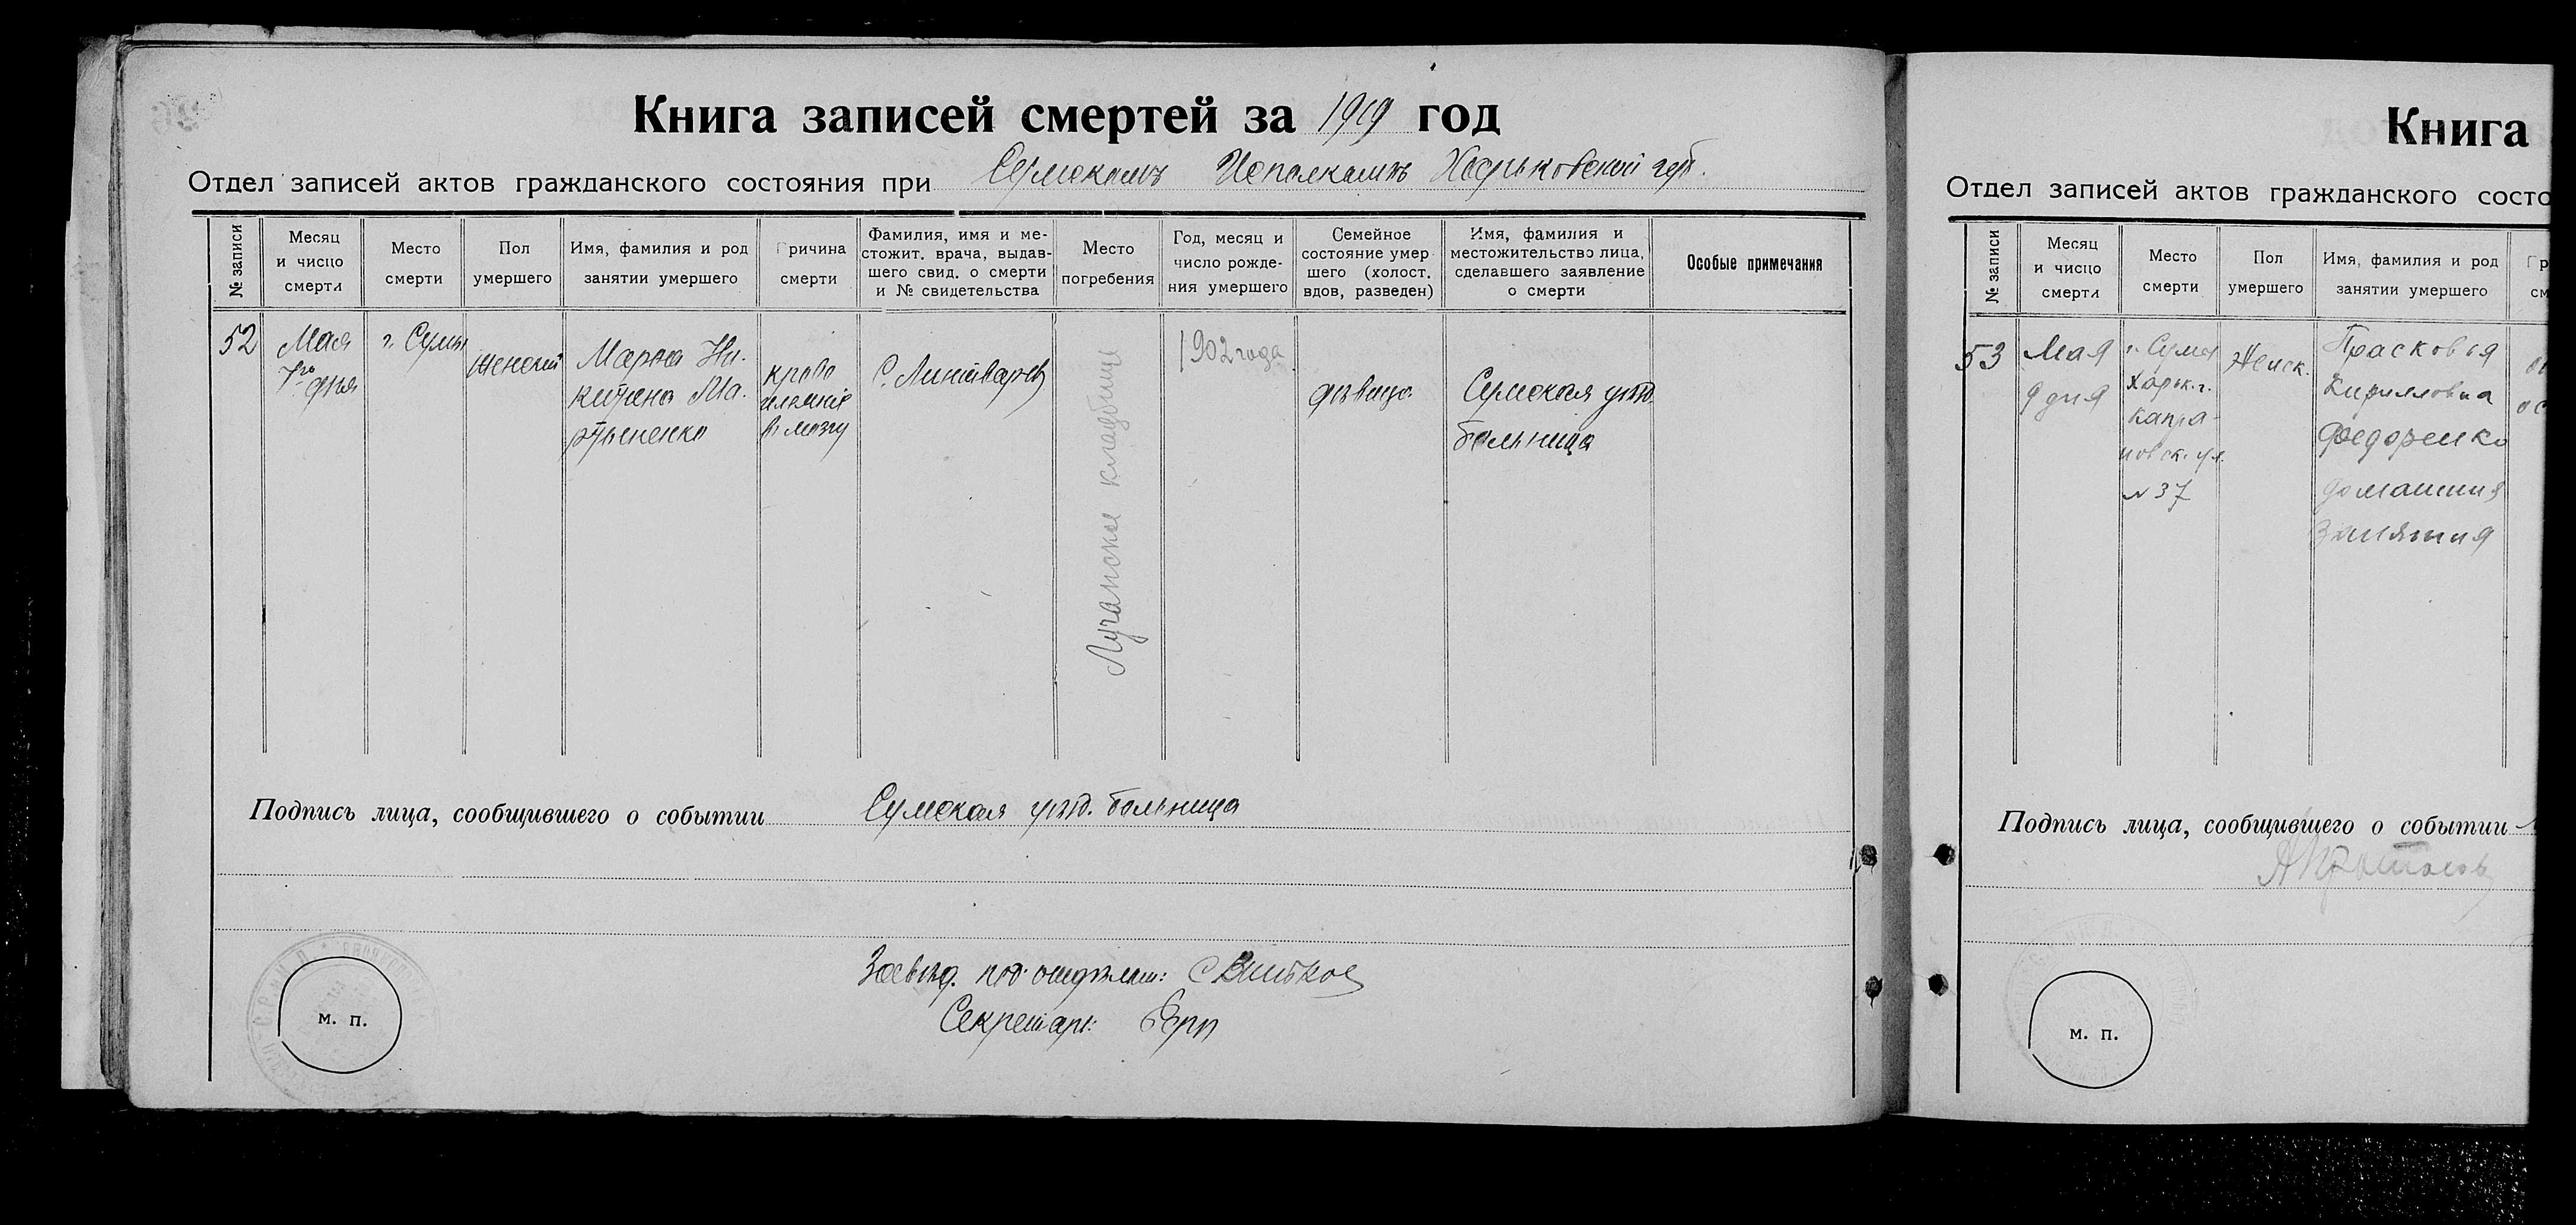 Книга записей смертей за 1919 год
Отдел записей актов гражданского состояния при Сумском Исполкоме Харьковской губ.
№ записи
Месяц и число смерти
Место смерти
Пол умершего
Имя, фамилия и род занятии умершего
Причина смерти
Фамилия, имя и местожит. врача, выдавшего свид. о смерти и № свидетельства
Место погребения
Год, месяц и число рождения умершего
Семейное состояние умершего (холост, вдов, разведен)
Имя, фамилия и местожительство лица, сделавшего заявление о смерти
Особые примечания
52
Мая
7го дня
г. Сумы
женский
Мария Ни-
китина Ма-
крово
в мозгу
С. Линтварев
Лучанское кладбище
1902 года
девица
Сумская уезд.
больница
Подпись лица, сообщившего о событии Сумская уезд. больница
Завед. подотделом:
Секретарь:
м. п.
Книга
Отдел записей актов гражданского состо
№ записи
Месяц и число смерти
Место смерти
Пол умершего
Имя, фамилия и род занятии умершего
53
Мая
9 дня
г. Сумы
Харьк. г.
новск. ул.
№ 37
Женск.
Прасковья
Кирилловна
Федоренко
домашния
занятия
Подпись лица, сообщившего о событии
м. п.